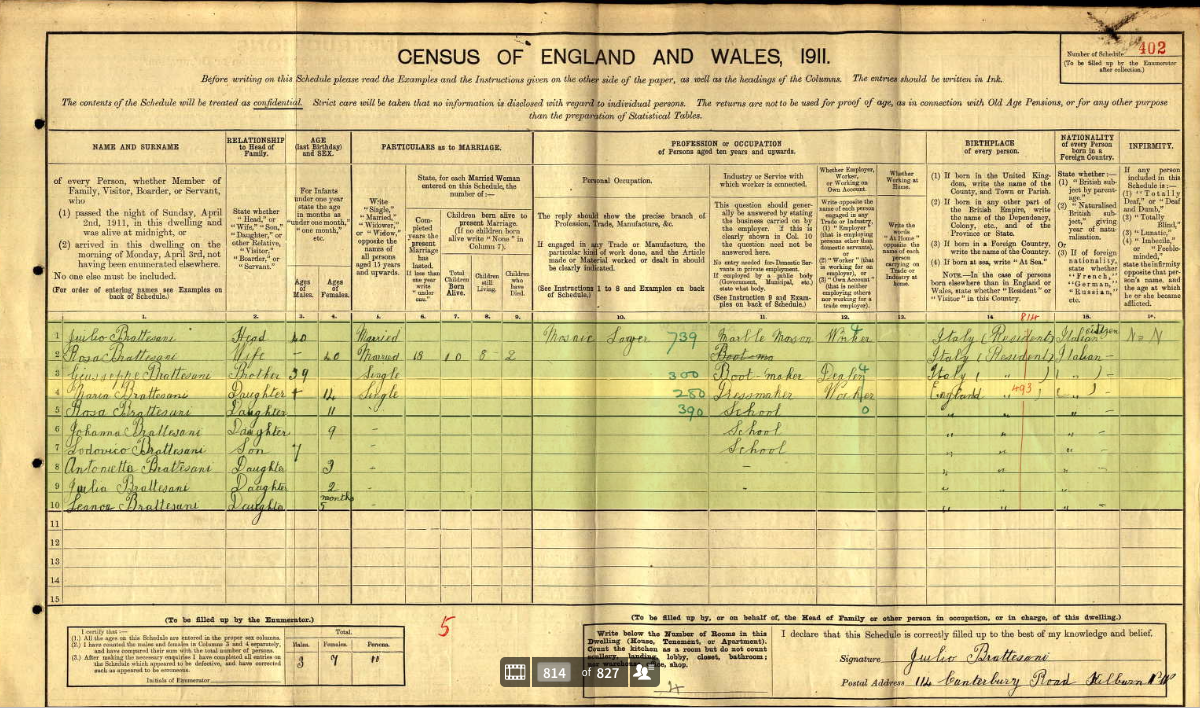 CENSUS OF ENGLAND AND WALES, 1911.
Number of Schedule 402
(To be filled up by the Enumerator after collection.)
Before writing on this Schedule please read the Examples and the Instructions given on the other side of the paper, as well as the headings of the Columns. The entries should be written in Ink.
The contents of the Schedule will be treated as confidential. Strict care will be taken that no information is disclosed with regard to individual persons. The returns are not to be used for proof of age, as in connection with Old Age Pensions, or for any other purpose
than the preparation of Statistical Tables.
NAME AND SURNAME
RELATIONSHIP to Head of Family.
AGE (last Birthday) and SEX.
PARTICULARS as to MARRIAGE.
PROFESSION or OCCUPATION of Persons aged ten years and upwards.
BIRTHPLACE of every person.
NATIONALITY of every Person born in a Foreign Country.
INFIRMITY.
of every Person, whether Member of Family, Visitor, Boarder, or Servant, who
(1) passed the night of Sunday, April 2nd, 1911, in this dwelling and was alive at midnight, or
(2) arrived in this dwelling on the morning of Monday, April 3rd, not having been enumerated elsewhere.
No one else must be included.
(For order of entering names see Examples on back of Schedule.)
State whether "Head," or "Wife," "Son," "Daughter," or other Relative, "Visitor," "Boarder," or "Servant."
For Infants under one year state the age in months as "under one month," "one month," etc.
Ages of Males.
Ages of Females.
Write "Single," "Married," "Widower," or "Widow," opposite the names of all persons aged 15 years and upwards.
State, for each Married Woman entered on this Schedule, the number of:—
Completed years the present Marriage has lasted. If less than one year write "under one."
Children born alive to present Marriage. (If no children born alive write "None" in Column 7).
Total Children Born Alive.
Children still Living.
Children who have Died.
Personal Occupation.
The reply should show the precise branch of Profession, Trade, Manufacture, &c.
If engaged in any Trade or Manufacture, the particular kind of work done, and the Article made or Material worked or dealt in should be clearly indicated.
(See Instructions 1 to 8 and Examples on back of Schedule.)
Industry or Service with which worker is connected.
This question should generally be answered by stating the business carried on by the employer. If this is clearly shown in Col. 10 the question need not be answered here.
No entry needed for Domestic Servants in private employment. If employed by a public body (Government, Municipal, etc.) state what body.
(See Instruction 9 and Examples on back of Schedule.)
Whether Employer, Worker, or Working on Own Account.
Write opposite the name of each person engaged in any Trade or Industry, (1) "Employer" (that is employing persons other than domestic servants), or (2) "Worker" (that is working for an employer), or (3) "Own Account" (that is neither employing others nor working for a trade employer).
Whether Working at Home.
Write the words "At Home" opposite the name of each person carrying on Trade or Industry at home.
(1) If born in the United Kingdom, write the name of the County, and Town or Parish.
(2) If born in any other part of the British Empire, write the name of the Dependency, Colony, etc., and of the Province or State.
(3) If born in a Foreign Country, write the name of the Country.
(4) If born at sea, write "At Sea."
NOTE.—In the case of persons born elsewhere than in England or Wales, state whether "Resident" or "Visitor" in this Country.
State whether:—
(1) "British subject by parentage."
(2) "Naturalised British subject," giving year of naturalisation.
Or
(3) If of foreign nationality, state whether "French," "German," "Russian," etc.
If any person included in this Schedule is:—
(1) "Totally Deaf," or "Deaf and Dumb,"
(2) "Totally Blind,"
(3) "Lunatic,"
(4) "Imbecile," or "Feeble-minded,"
state the infirmity opposite that person's name, and the age at which he or she became afflicted.
1. 2. 3. 4. 5. 6. 7. 8. 9. 10. 11. 12. 13. 14. 814 15. 16.
1 Juilio Brattesani Head 40 Married Mosaic Layer 739 Marble Mason Worker 4 Italy (Resident) Italian citizen
2 Rosa Brattesani Wife – 40 Married 18 10 8 2 Italy (Resident) Italian –
3 Giusseppe Brattesani Brother 39 Single 300 Boot-maker 4 Italy ( " ) " ) –
4 Maria Brattesani Daughter 14 Single 280 Dressmaker Worker England " 493 ) " ) –
5 Rosa Brattesani Daughter 11 – 390 School 0 " " " –
6 Johanna Brattesani Daughter 9 – School " " " –
7 Lodovico Brattesani Son 7 – School " " " –
8 Antonietta Brattesani Daughter 3 – – " " " –
9 Julia Brattesani Daughter 2 – - " " " –
10 Brattesani Daughter months 5 " " " –
11
12
13
14
15
(To be filled up by the Enumerator.)
I certify that:—
(1.) All the ages on this Schedule are entered in the proper sex columns.
(2.) I have counted the males and females in Columns 3 and 4 separately, and have compared their sum with the total number of persons.
(3.) After making the necessary enquiries I have completed all entries on the Schedule which appeared to be defective, and have corrected such as appeared to be erroneous.
Initials of Enumerator
Total.
Males. Females. Persons.
3 7 10
5
(To be filled up by, or on behalf of, the Head of Family or other person in occupation, or in charge, of this dwelling.)
Write below the Number of Rooms in this Dwelling (House, Tenement, or Apartment). Count the kitchen as a room but do not count scullery, landing, lobby, closet, bathroom; nor warehouse, office, shop.
4
I declare that this Schedule is correctly filled up to the best of my knowledge and belief.
Signature Juilio Brattesani
Postal Address 114 Canterbury Road Kilburn NW
814 of 827